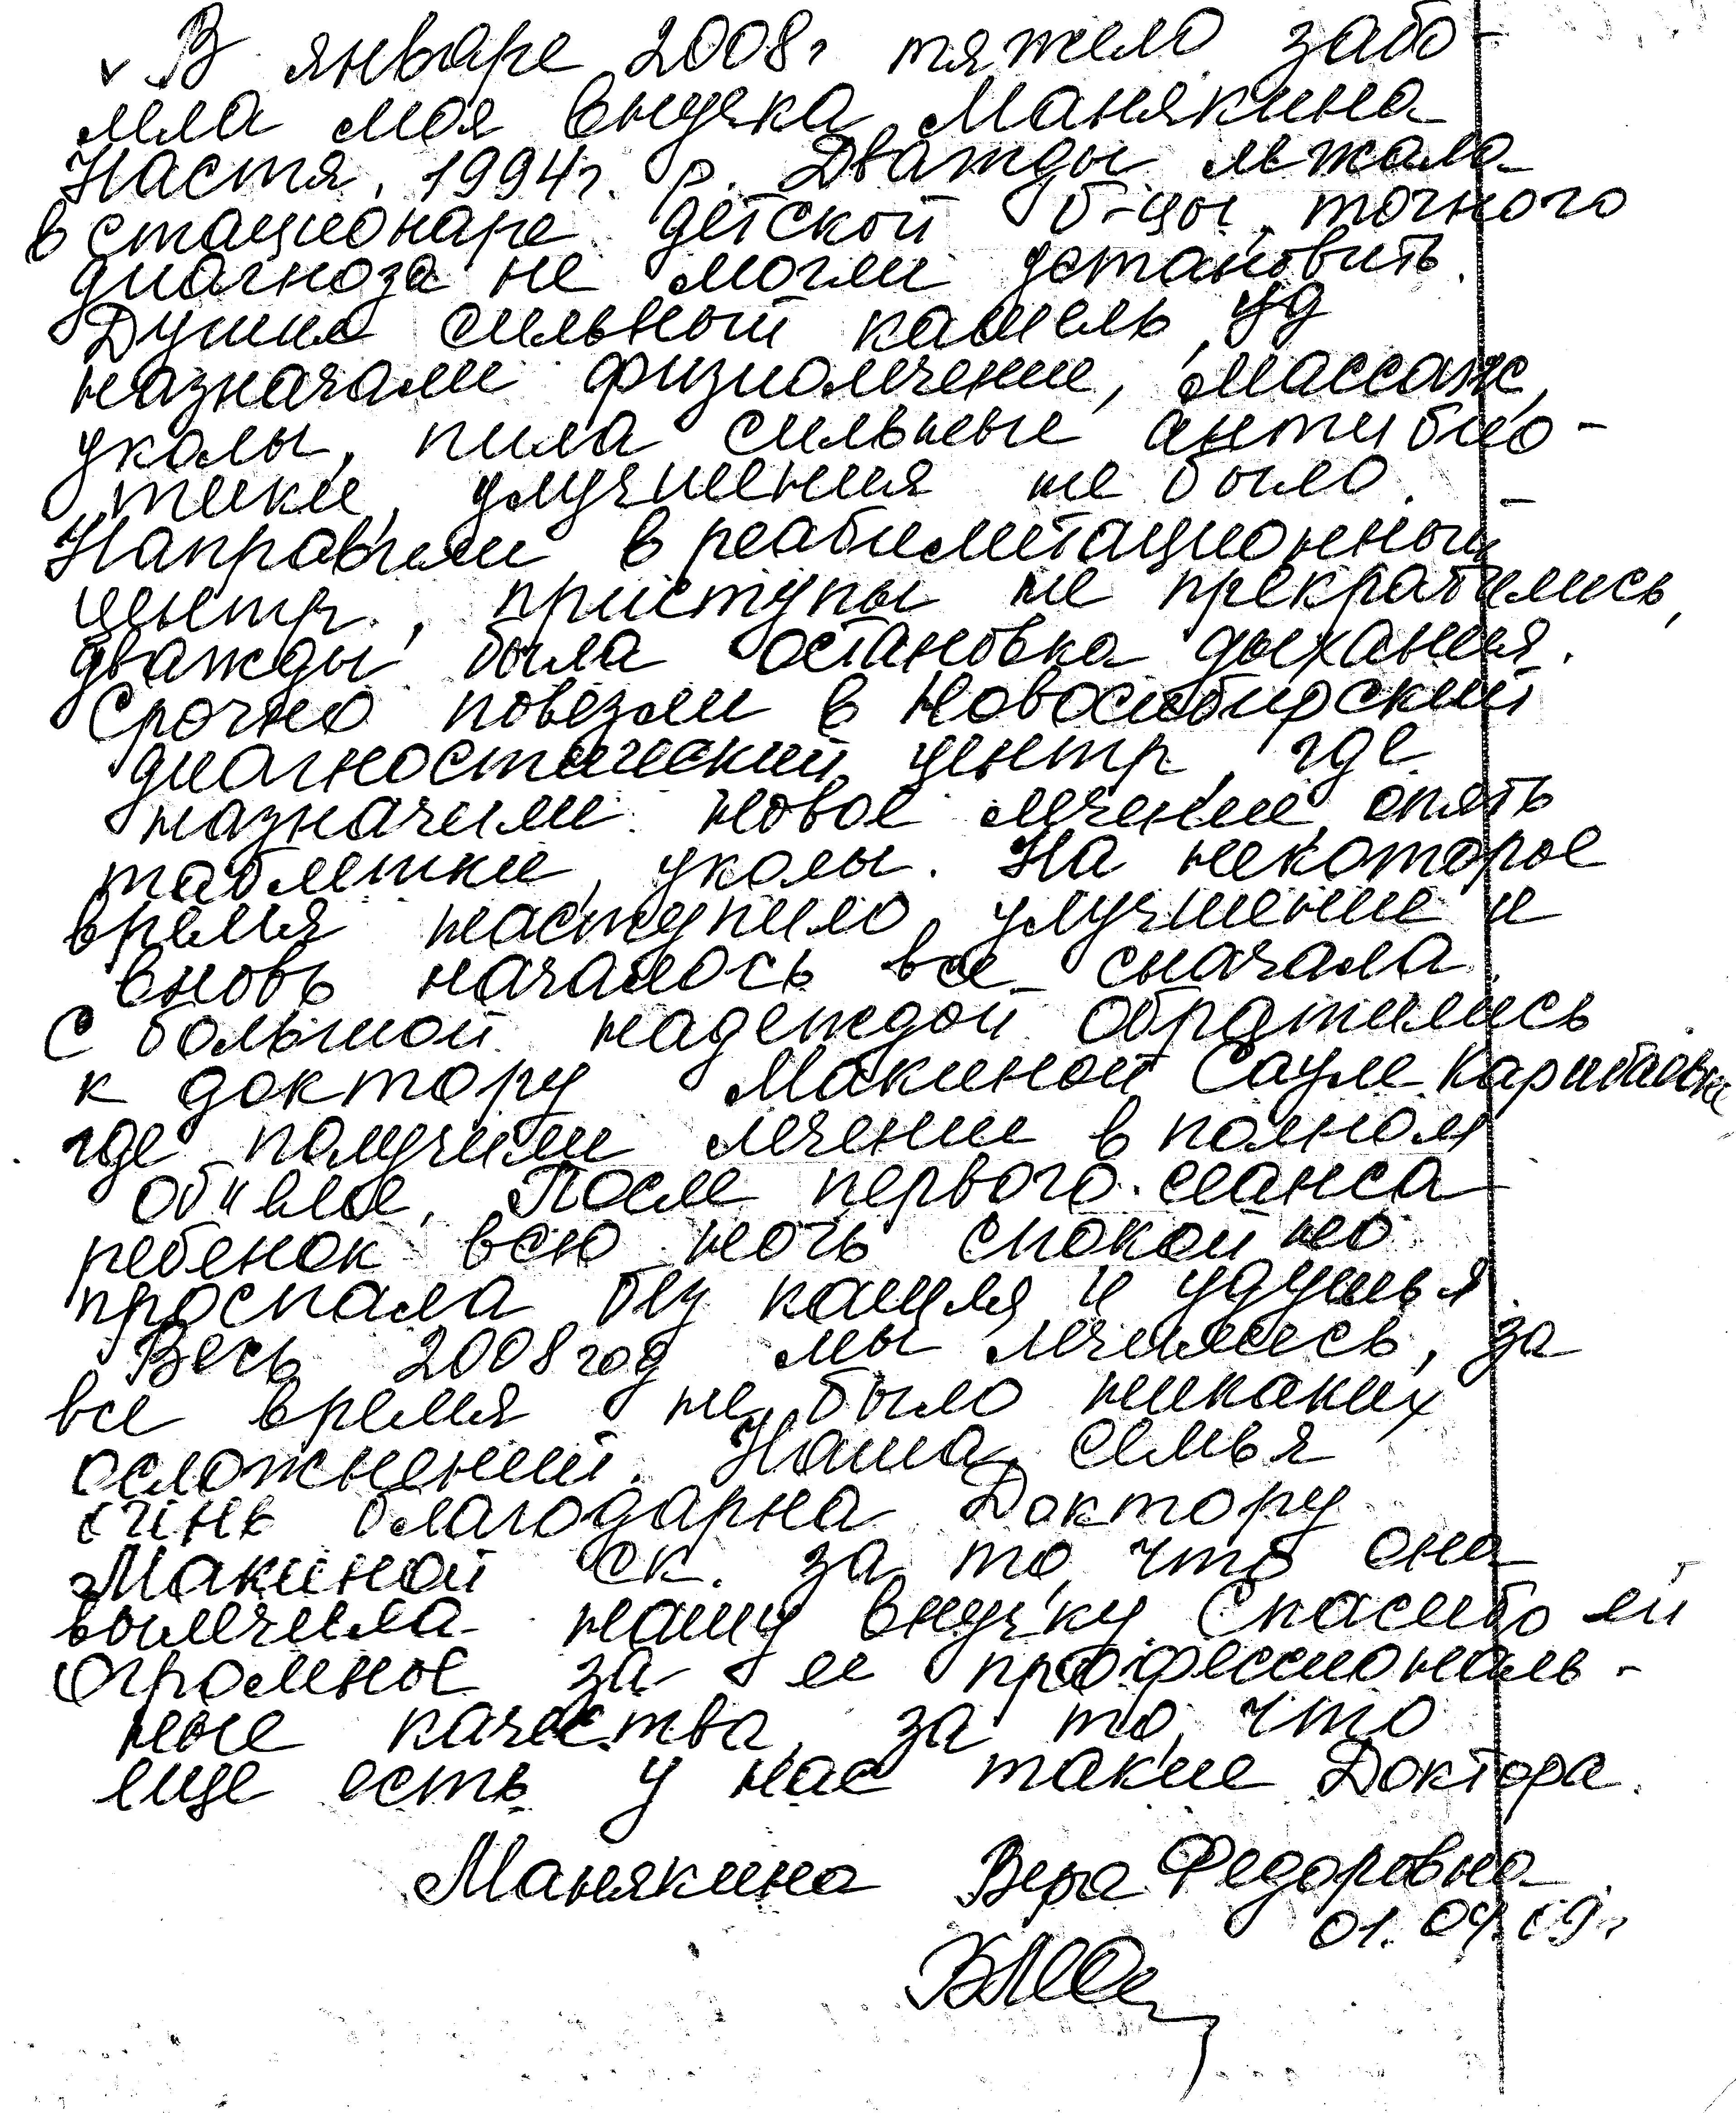 В январе 2008г тяжело забо-
лела моя внучка Манякина
Настя, 1994г. р. Дважды лежала
в стационаре детской б-цы, точного
диагноза не могли установить.
Душил сильный кашель,
назначали физиолечение, массаж,
уколы, пила сильные антибио-
тики, улучшения не было.
Направили в реабилитационный
центр, приступы не прекратились,
дважды была остановка дыхания.
Срочно повезли в Новосибирский
диагностический центр, где
назначили новое лечение, опять
таблетки, уколы. На некоторое
время наступило улучшение и
вновь началось все сначала.
С большой надеждой обратились
к доктору Макиной Сауле Карибаевне
где получили лечение в полном
объеме. После первого сеанса
ребенок всю ночь спокойно
проспала без кашля и удушья.
Весь 2008 год мы лечились, за
все время не было никаких
осложнений. Наша семья
очень благодарна Доктору
Макиной СК. за то, что она
вылечила нашу внучку. Спасибо ей
огромное за ее профессиональ-
ные качества, за то, что
еще есть у нас такие Доктора.
Манякина Вера Федоровна
01.04.09г